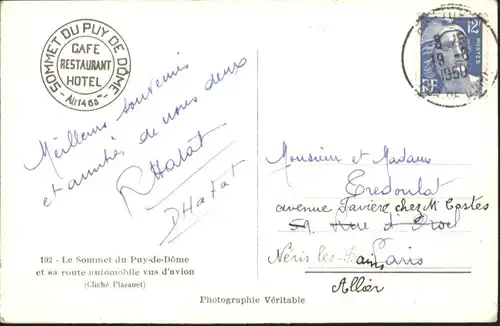 SOMMET DU PUY DE DÔME
CAFE
RESTAURANT
HOTEL
Alt 1465 m
12F
POSTES
RF
8 19-6
1950
Meilleurs souvenirs
et amitiés de nous deux
RHatat
DHatat
Monsieur et Madame
Tredoulat
avenue Favière chez Mr Costes
59 Rue d'Orsel
Néris les-Bains Paris
Allier
192 - Le Sommet du Puy-de-Dôme
et sa route automobile vus d'avion
(Cliché Plazanet)
Photographie Véritable